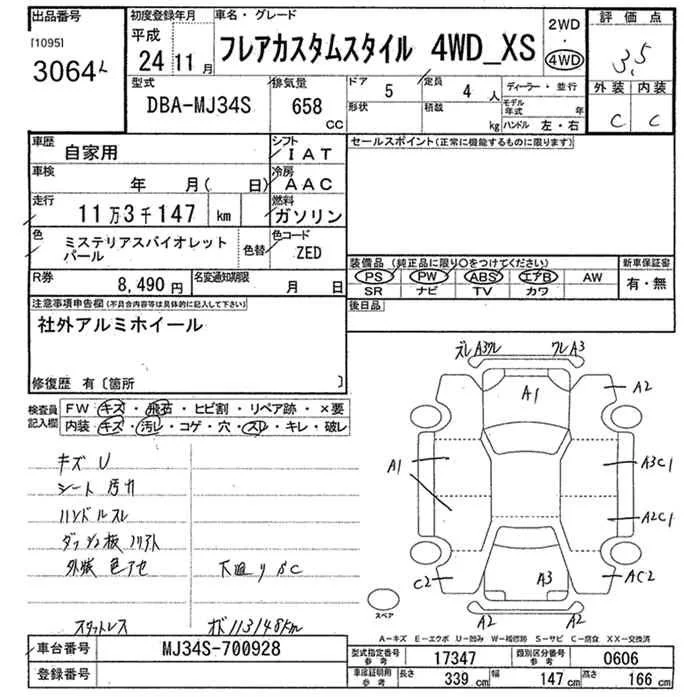 出品番号
[1095]
3064
初度登録年月
平成
24 11月
車名・グレード
フレアカスタムスタイル 4WD_XS
2WD
・
4WD
評価点
3.5
外装 内装
C C
型式
DBA-MJ34S
排気量
658
CC
ドア
5
定員
4 人
形状
積載
kg
ディーラー・並行
モデル年式 年
ハンドル 左・右
車歴
自家用
シフト
IAT
車検
年 月( 日)
冷房
AAC
走行
11万3千147 km
燃料
ガソリン
色
ミステリアスバイオレット
パール
色替
色コード
ZED
R券
8,490円
名変通知期限
月 日
セールスポイント(正常に機能するものに限ります)
装備品(純正品に限り○をつけてください)
PS PW ABS エアB AW
SR ナビ TV カワ
新車保証書
有・無
後日品
注意事項申告欄(不具合内容等は具体的に記入して下さい)
社外アルミホイール
修復歴 有〔箇所 〕
検査員
記入欄
FW キズ・飛石・ヒビ割・リペア跡・×要
内装 キズ・汚レ・コゲ・穴・スレ・キレ・破レ
キズ U
シート 汚れ
ハンドルスレ
外装 色アセ
下廻りサC
スタットレス
113148km
ズレ A3ワレ ワレ A3
A1
A2
A1
A3C1
A2C1
C2
A3
AC2
A2 A2
スペア
A-キズ E-エクボ U-凹み W-補修跡 S-サビ C-腐食 XX-交換済
車台番号
MJ34S-700928
登録番号
型式指定番号
参考
17347
類別区分番号
参考
0606
車庫証明用
参考
長さ 339 cm
幅 147 cm
高さ 166 cm